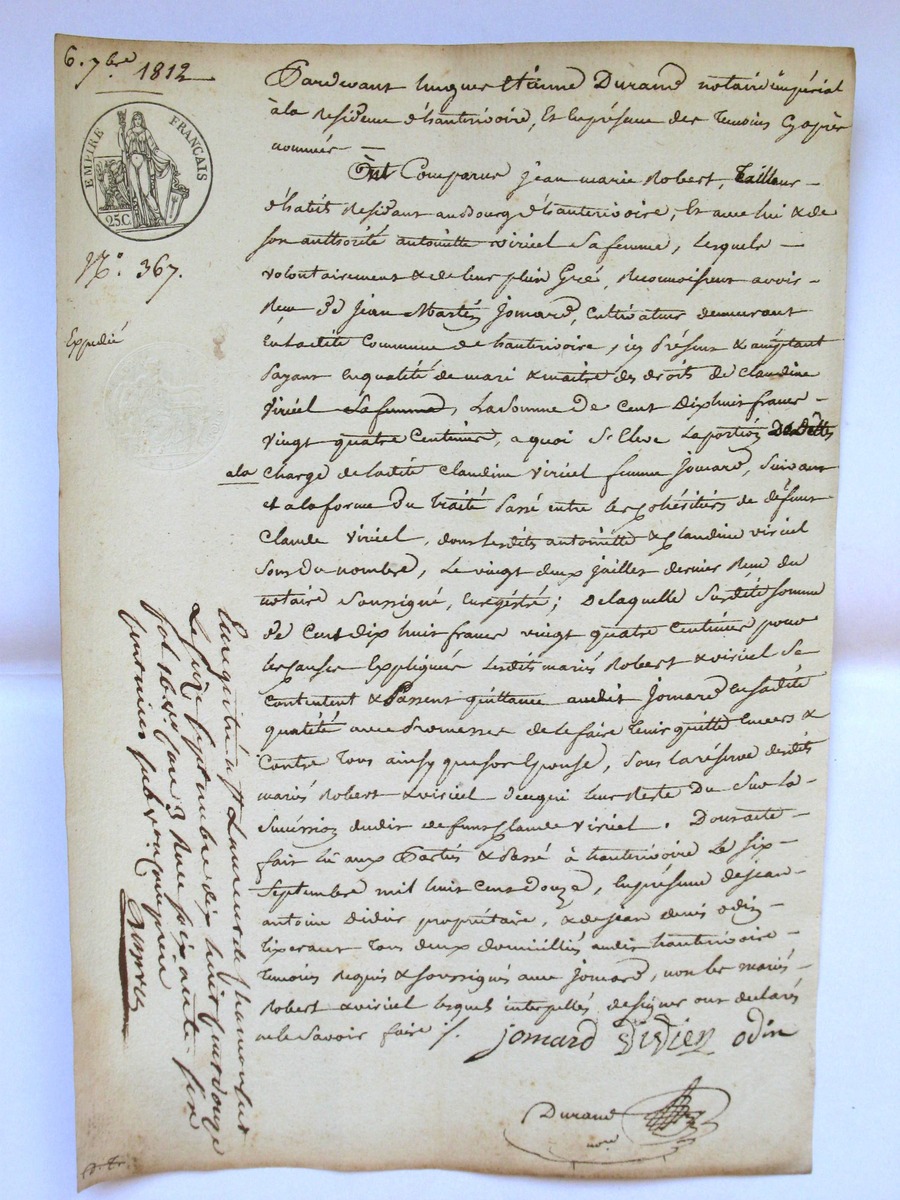 6. 7bre 1812
EMPIRE FRANÇAIS
25C.
N.° 367.
Expedié
Pardevant hugues Etienne Durand notaire impérial
à la Residence d'hauterivoire, Et En présence des Temoins Cy après
nommés —
Ont Comparus jean marie Robert, Tailleur –
d'habit Residant au Bourg d'hauterivoire, Et avec lui & de
son authorité antoinette viriel sa femme, lesquels –
volontairement & de leur plein Gré, Reconnoissent avoir –
Reçu de Jean Martin Jomard, Cultivateur demeurant
En ladite Commune de hauterivoire, ici Présent & acceptant
Payant En qualité de mari & maitre des droits de Claudine
Viriel sa femme, La somme De Cent Dixhuit francs –
vingt quatre Centimes, a quoi S'Eleve La portion De Dettes
a la Charge de ladite Claudine Viriel femme Jomard, Suivant
et à la forme Du Traité Passé entre les Cohéritiers de défunt
Claude Viriel, dont lesdits antoinette & Claudine viriel
Sont Du nombre, Le vingt deux juillet dernier Reçu du
notaire Soussigné, Enregistré; De laquelle Susdite somme
de Cent dix huit francs vingt quatre Centimes pour
les causes Expliquées lesdits mariés Robert & viriel Se
Contentent & Passent quittance audit Jomard En sadite
qualité avec Promesse de le faire Tenir quitte Envers &
Contre Tous ainsy que son Epouse, Sous la réserve desdits
mariés Robert & viriel de ce qui leur Reste Du Sur la –
Succéssion dudit defunt Claude Viriel. Dont acte –
fait lû aux Parties & Passé à hauterivoire Le six –
Septembre mil huit Cent douze, En présence de jean
antoine didier propriétaire, & de jean denis odin –
Tixerant Tous deux domiciliés audit hauterivoire –
Temoins Requis & soussignés avec Jomard, non les mariés –
Robert & viriel lesquels interpellés de signer ont declarés
ne le Savoir faire ./.
jomard Didier odin
Durand
nore
Enregistré à St Laurent de Chamousset
Le seize Septembre dix huit cent douze
fol. 16. Ro. Case 3 Reçu soixante six
Centimes subvention comprise